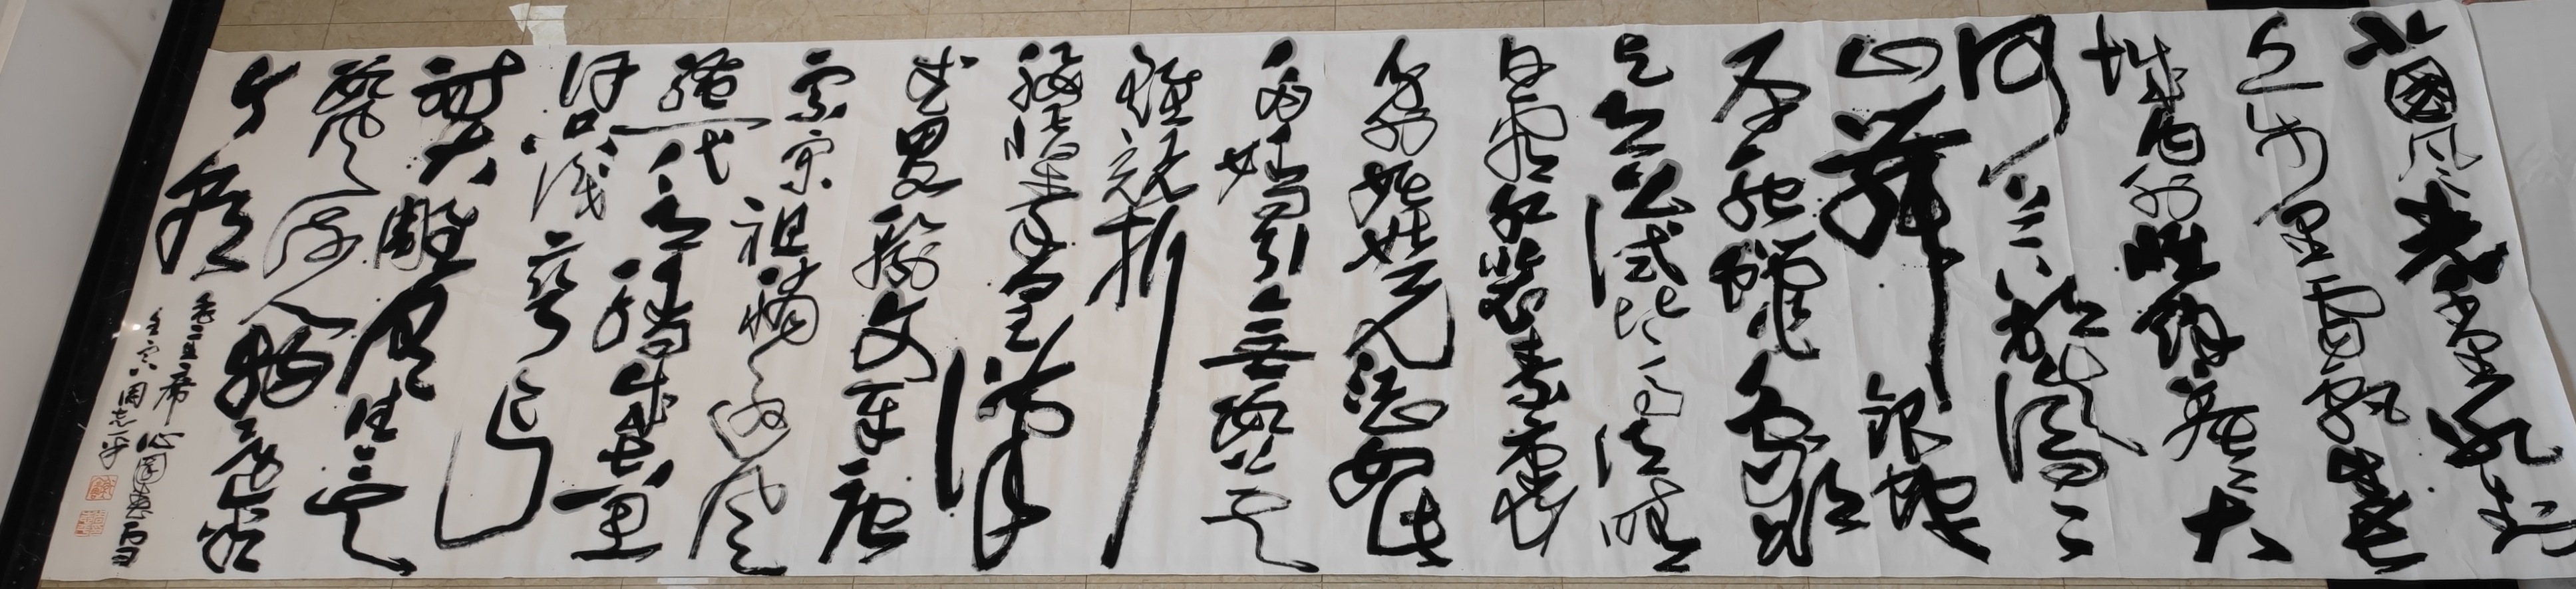 北國风光千里冰封
万里雪飘望长
城内外惟馀莽莽大
河上下顿失滔滔
山舞银蛇
原驰蜡象欲
与天公试比高须晴
日看红装素裹
分外妖娆江山如此
多娇引无数英
雄竞折
腰惜秦皇漢
武略输文采唐
宗宋祖稍逊风
骚一代天骄成吉思
汗只识弯弓
射大雕俱往矣
数风流人物还看
今朝
毛主席沁園春雪
壬寅周志平书